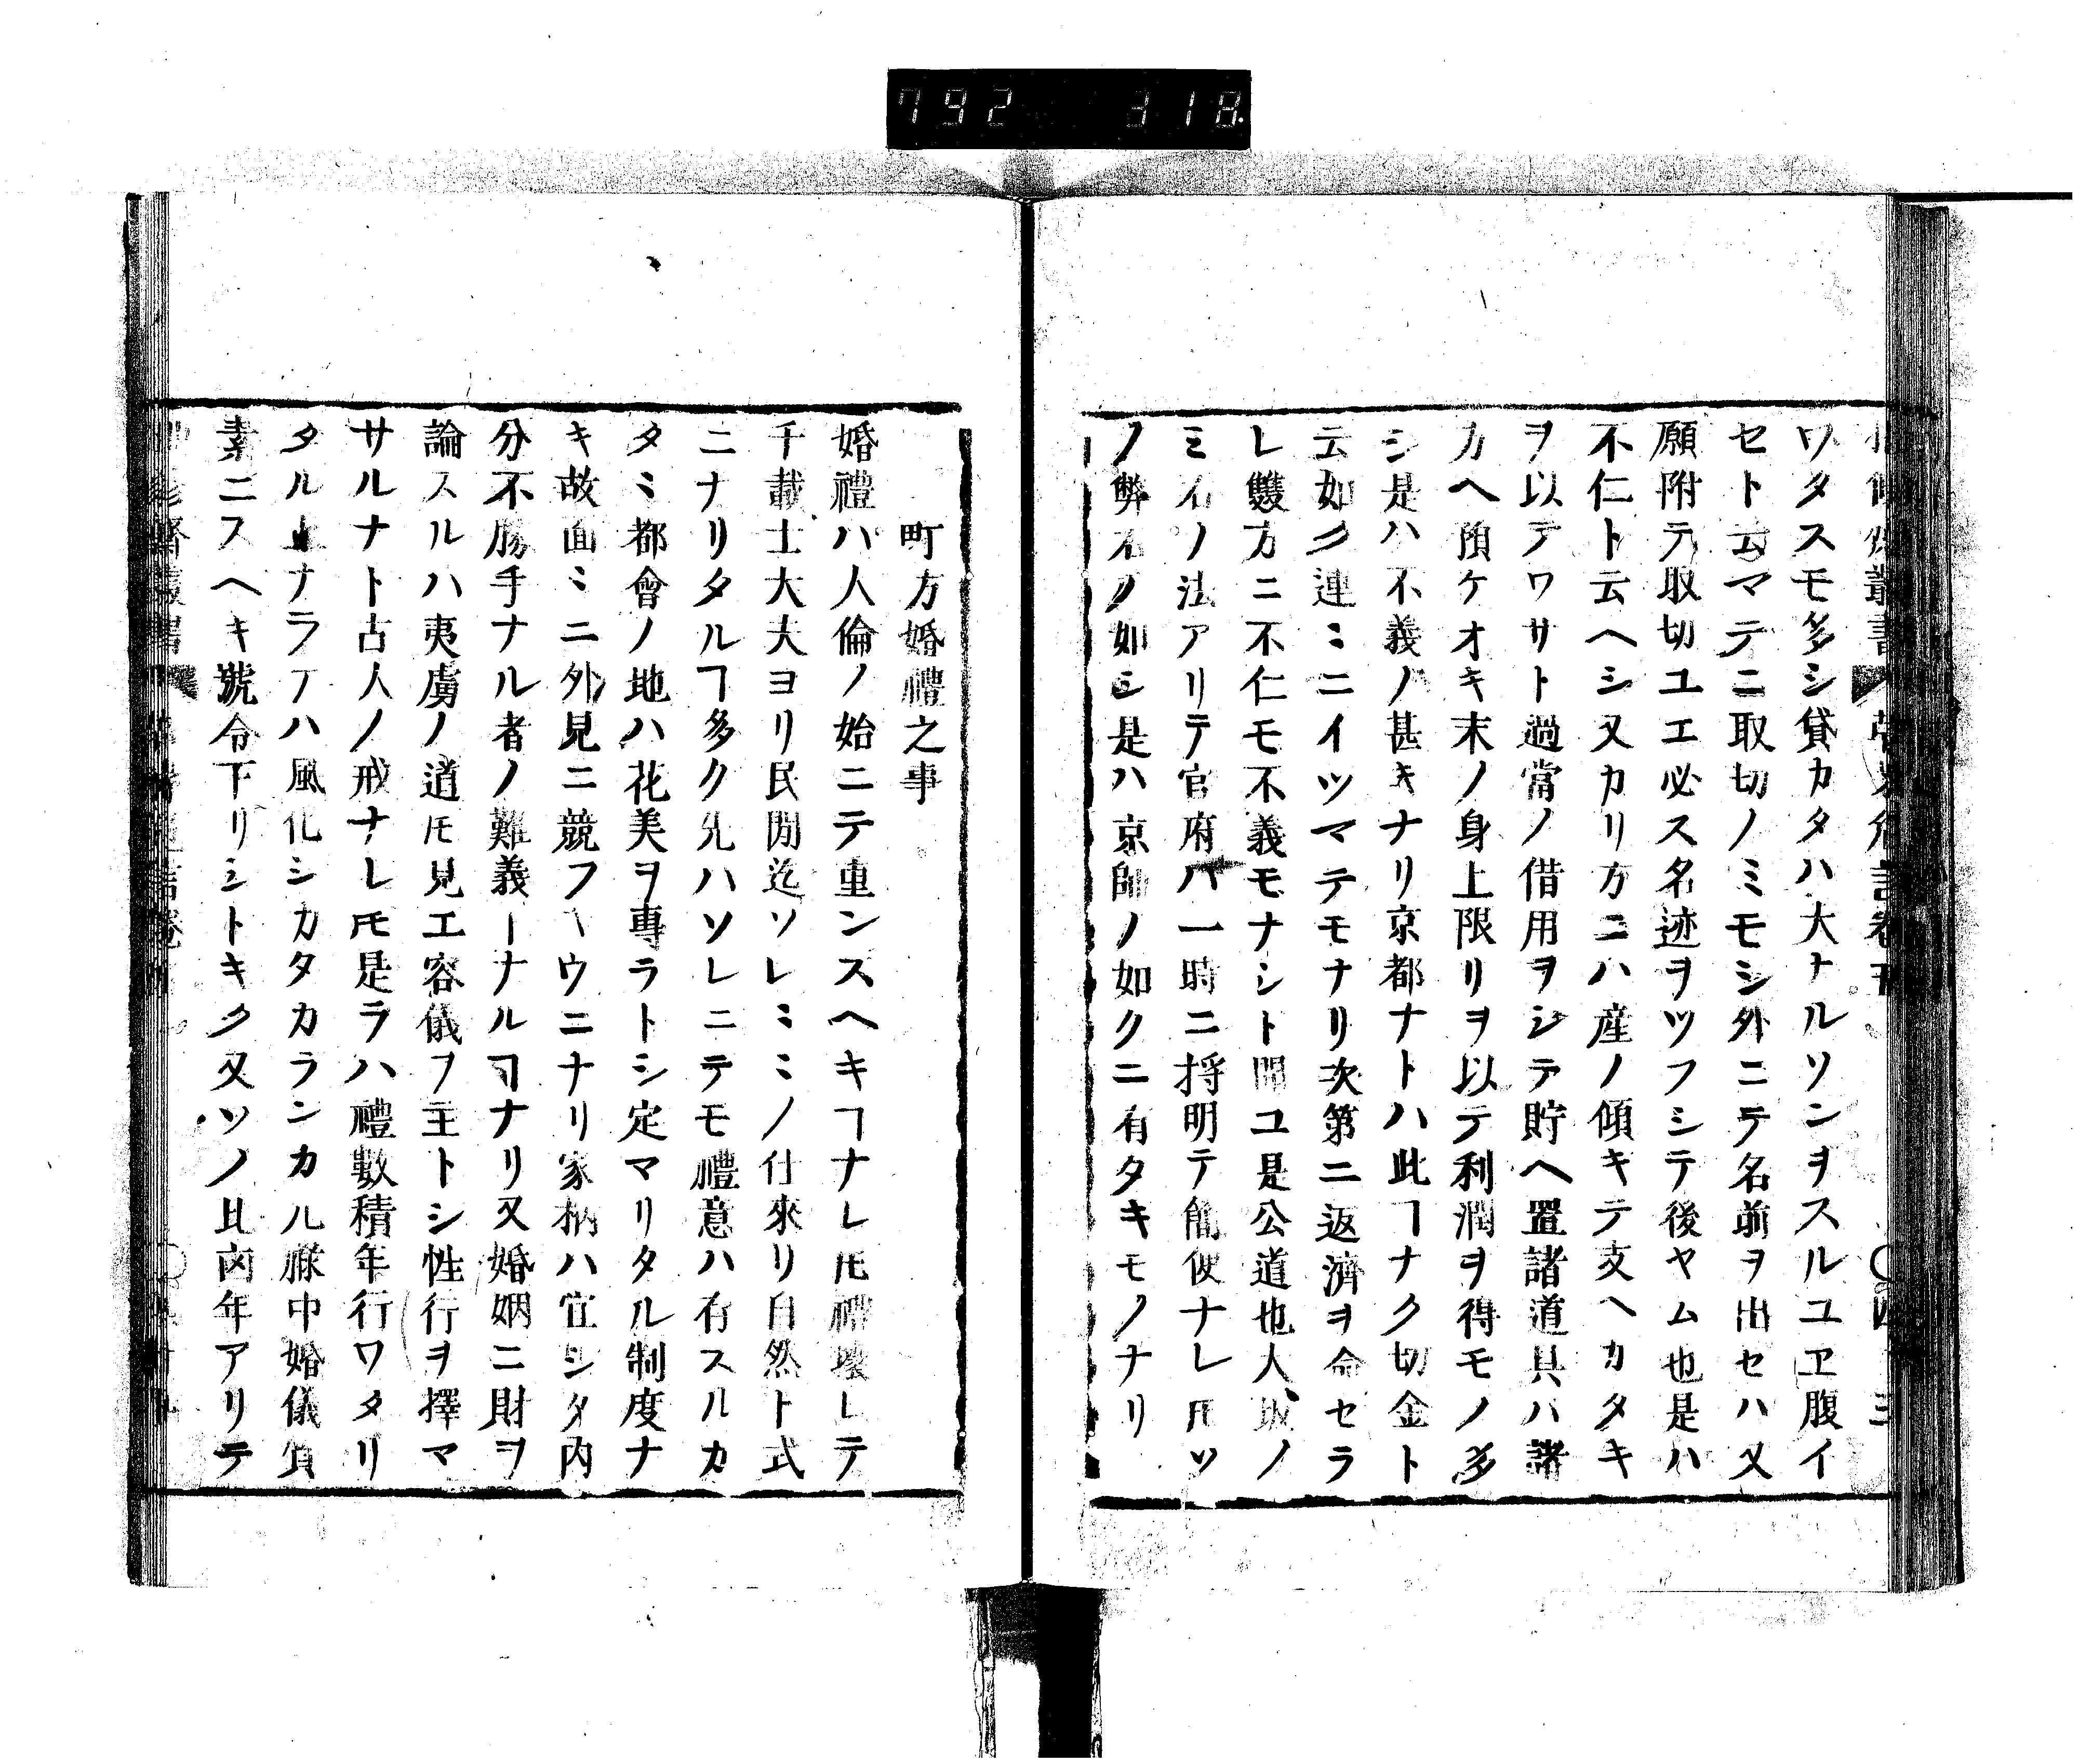 792 318
ワタスモ多シ貸カタハ大ナルソンヲスルユヱ腹イ
セト云マテニ取切ノミモシ外ニテ名前ヲ出セハ又
願附テ取切ユエ必ス名迹ヲツフシテ後ヤム也是ハ
不仁ト云ヘシ又カリ方ニハ産ノ傾キテ支ヘカタキ
ヲ以テワサト過常ノ借用ヲシテ貯ヘ置諸道具ハ諸
カヘ預ケオキ末ノ身上限リヲ以テ利潤ヲ得モノ多
シ是ハ不義ノ甚キナリ京都ナトハ此ヿナク切金ト
云如ク連ミニイツマテモナリ次第ニ返濟ヲ命セラ
レ雙方ニ不仁モ不義モナシト聞ユ是公道也大坂ノ
ミ右ノ法アリテ官府ハ一時ニ捋明テ簡便ナレ𪜈ソ
ノ弊右ノ如シ是ハ京師ノ如クニ有タキモノナリ
町方婚禮之事
婚禮ハ人倫ノ始ニテ重ンスヘキヿナレ𪜈禮壞レテ
千載士大夫ヨリ民間迄ソレミミノ仕來リ自然ト式
ニナリタルヿ多ク先ハソレニテモ禮意ハ有スルカ
タミ都會ノ地ハ花美ヲ專ラトシ定マリタル制度ナ
キ故面ミニ外見ニ競フヤウニナリ家柄ハ宜シタ内
分不勝手ナル者ノ難義ーナルヿナリ又婚姻ニ財ヲ
論スルハ夷虜ノ道𪜈見エ容儀ヲ主トシ性行ヲ擇マ
サルナト古人ノ戒ナレ𪜈是ラハ禮數積年行ワタリ
タル上ナラテハ風化シカタカランカル縣中婚儀質
素ニスヘキ號令下リシトキク又ソノ比凶年アリテ